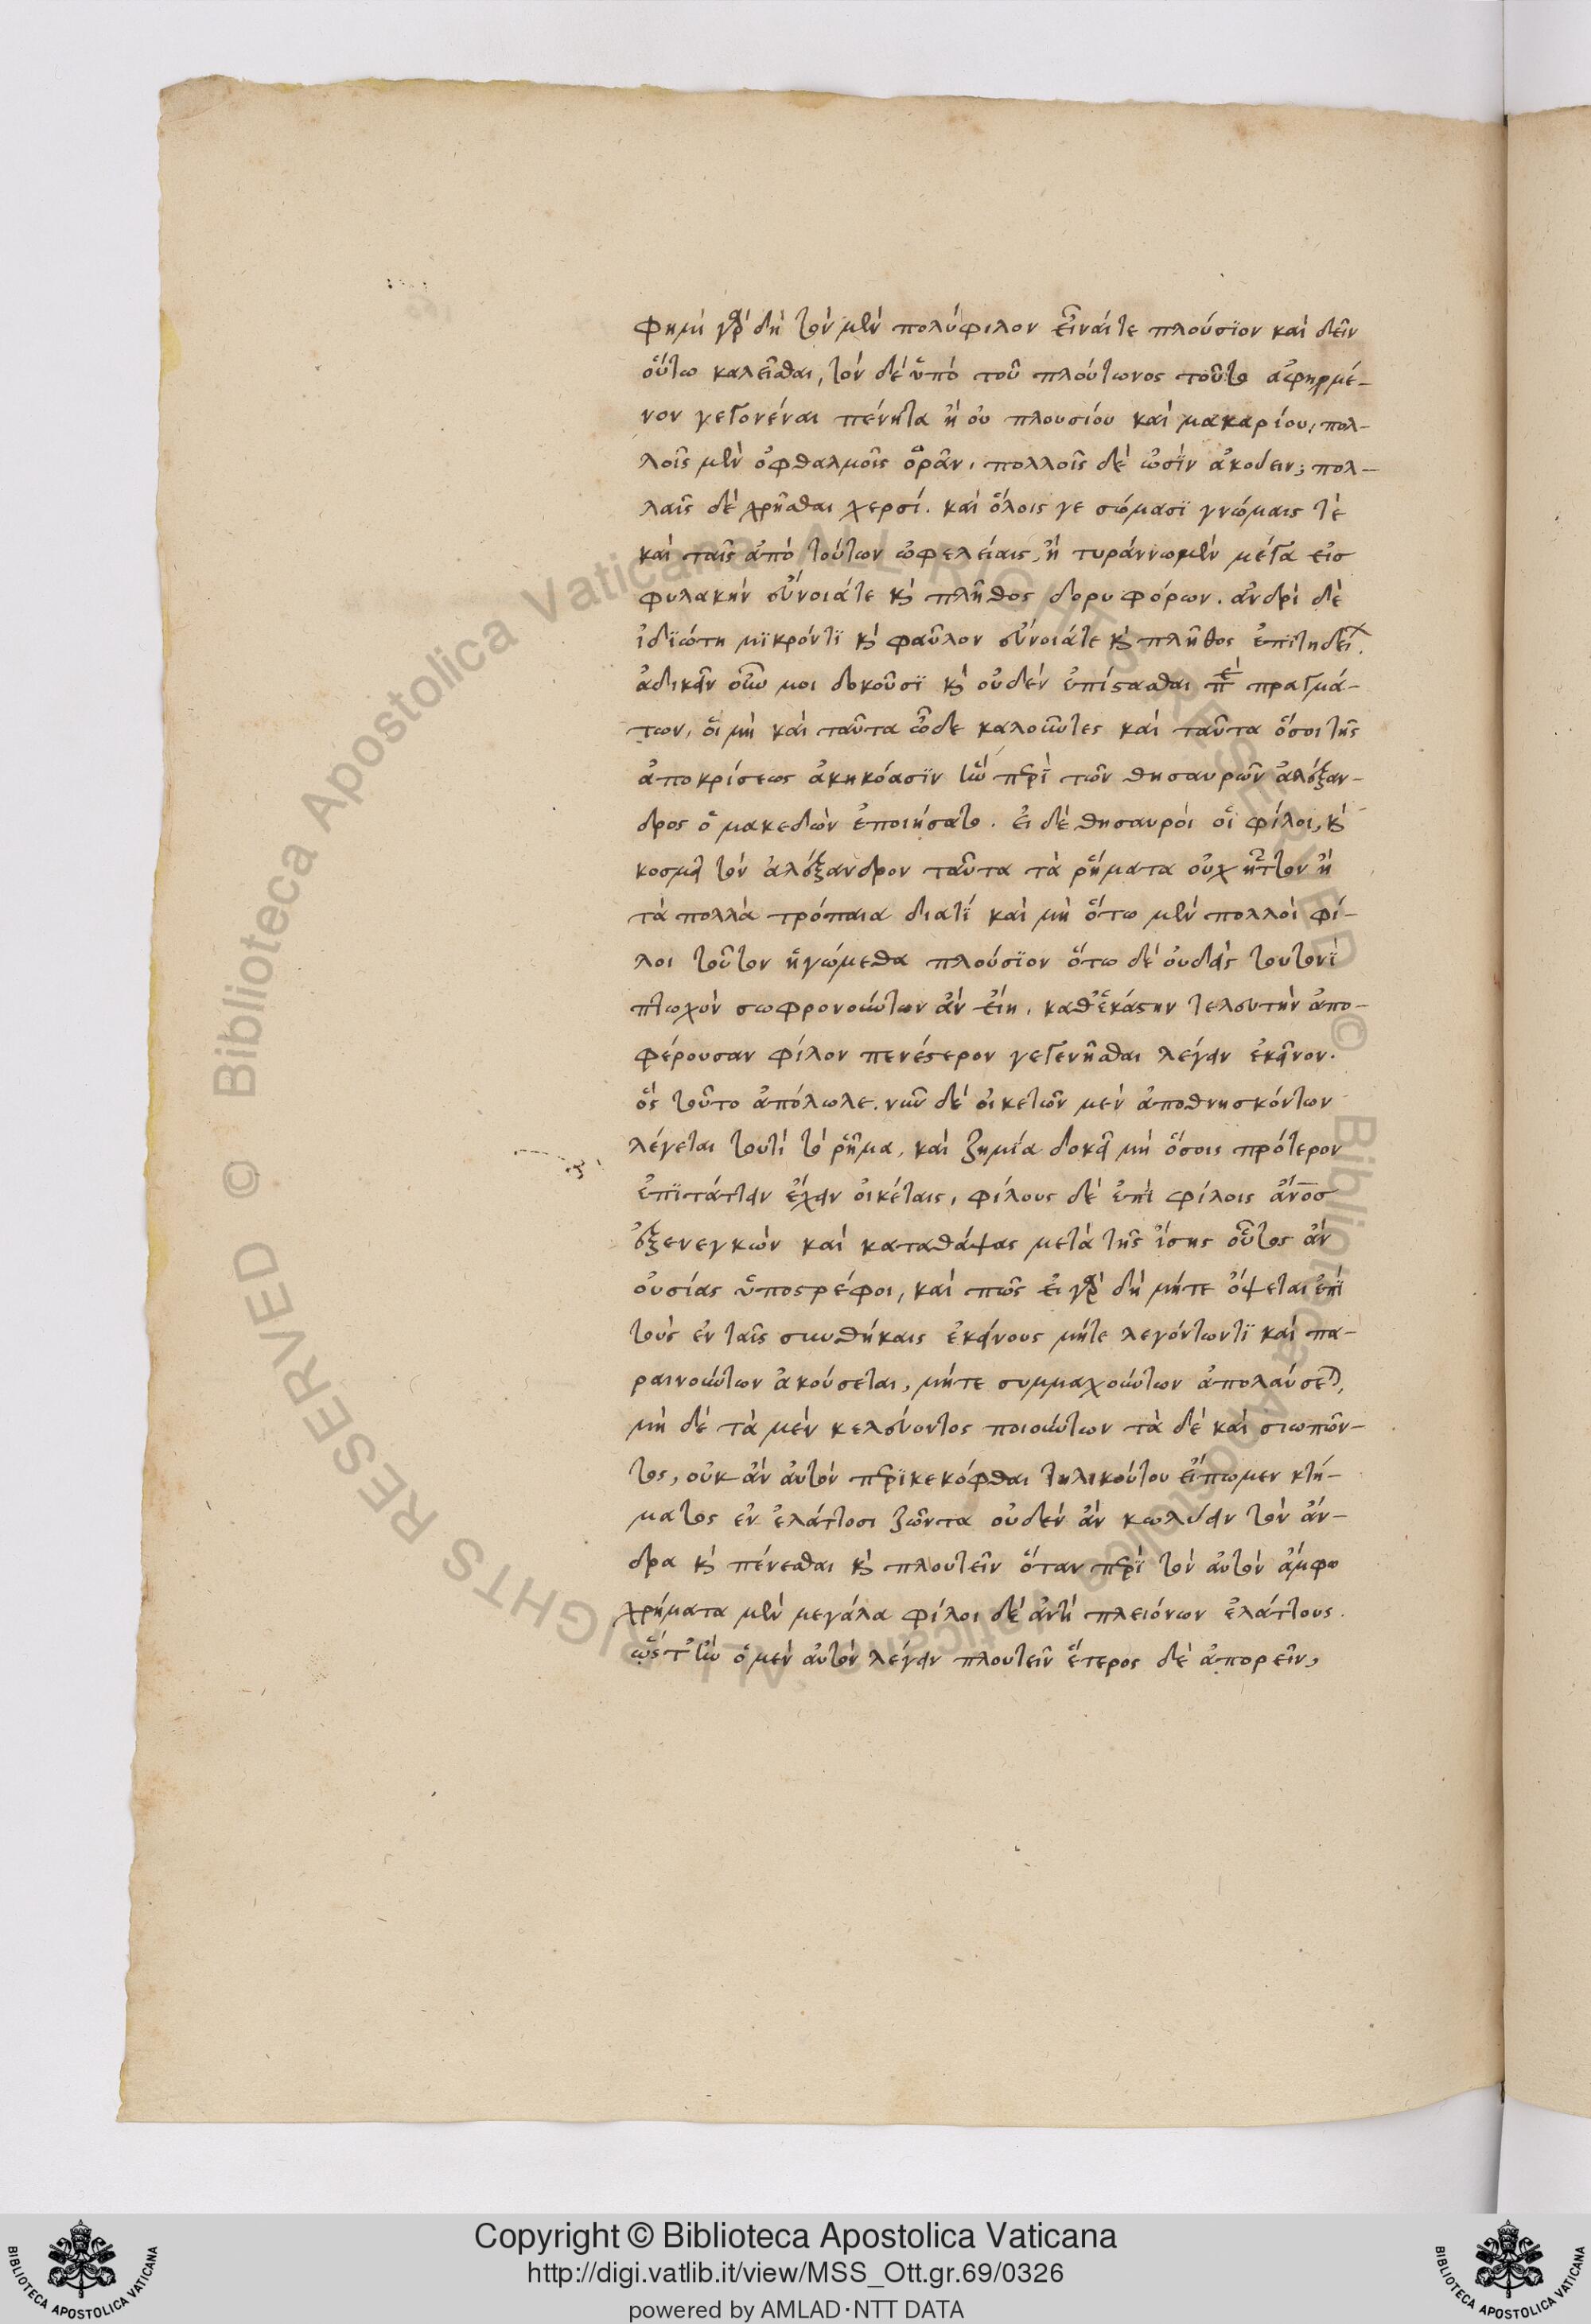 φημὶ γὰρ δὴ τὸν μὲν πολύφιλον εἶναί τε πλούσϊον καὶ δεῖν
οὕτω καλεῖσθαι, τὸν δὲ ὑπὸ τοῦ πλούτωνος τοῦτο ἀφηρμέ-
νον γεγονέναι πένητα ἢ οὐ πλουσίου καὶ μακαρίου, πολ-
λοῖς μὲν ὀφθαλμοῖς ὁρᾶν, πολλοῖς δὲ ὠσϊν ἀκούειν, πολ-
λαῖς δὲ χρῆσθαι χερσί. καὶ ὅλοις γε σώμασϊ γνώμαις τὲ
καὶ ταῖς ἀπὸ τούτων ὠφελείαις, ἢ τυράννω μὲν μέγα εἰσ
φυλακὴν εὔνοιάτε καὶ πλῆθος δορυφόρων. ἀνδρὶ δὲ
ἰδϊώτη μϊκρόντϊ καὶ φαῦλον εὔνοιάτε καὶ πλῆθος ἐπϊτηδεί.
ἀδικεῖν οὖν μοι δοκοῦσϊ καὶ οὐδὲν ἐπίστασθαι περὶ πραγμά-
των, οἳ μὴ καὶ ταῦτα ὧδε καλοῦντες καὶ ταῦτα ὅσοι τῆς
ἀποκρίσεως ἀκηκόασϊν ἣν περὶ τῶν θησαυρῶν ἀλέξαν-
δρος ὁ μακεδὼν ἐποιήσατο. εἰ δὲ θησαυροὶ οἱ φίλοι, καὶ
κοσμεῖ τὸν ἀλέξανδρον ταῦτα τὰ ῥήματα οὐχ ἧττον ἢ
τὰ πολλὰ τρόπαια διατί καὶ μὴ ὅτω μὲν πολλοὶ φί-
λοι τοῦτον ἡγώμεθα πλούσϊον ὅτω δὲ οὐδεὶς τουτονϊ
πτωχὸν σωφρονούντων ἂν εἴη. καθ' ἑκάστην τελευτὴν ἀπο-
φέρουσαν φίλον πενέστερον γεγενῆσθαι λέγειν ἐκεῖνον.
ὃς τοῦτο ἀπόλωλε. νῦν δὲ οἰκετῶν μὲν ἀποθνησκόντων
λέγεται τουτὶ τὸ ῥῆμα, καὶ ζημία δοκεῖ μὴ ὅσοις πρότερον
ἐπϊτάττειν ἔχειν οἰκέταις, φίλους δὲ ἐπὶ φίλοις ἄνος
ἐξενεγκὼν καὶ καταθάψας μετὰ τῆς ἴσης οὗτος ἂν
οὐσίας ὑποστρέφοι, καὶ πῶς εἰ γὰρ δὴ μήτε ὄψεται ἐπϊ
τοὺς ἐν ταῖς συνθήκαις ἐκείνους μήτε λεγόντωντϊ καὶ πα-
ραινούντων ἀκούσεται, μήτε συμμαχούντων ἀπολαύσεται,
μὴ δὲ τὰ μὲν κελεύοντος ποιούντων τὰ δὲ καὶ σιωπῶν-
τος, οὐκ ἂν αὐτὸν περϊκεκόφθαι τηλικούτου εἴπωμεν κτή-
ματος ἐν ἐλάττοσι ζῶντα οὐδὲν ἂν κωλύειν τὸν ἄν-
δρα καὶ πένεσθαι καὶ πλουτεῖν ὅταν περὶ τὸν αὐτὸν ἄμφω
χρήματα μὲν μεγάλα φίλοι δὲ ἀντὶ πλειόνων ἐλάττους.
ὥστ' ἦν ὁ μὲν αὐτὸν λέγειν πλουτεῖν ἕτερος δὲ ἀπορεῖν,
Copyright © Biblioteca Apostolica Vaticana
http://digi.vatlib.it/view/MSS_Ott.gr.69/0326
powered by AMLAD·NTT DATA
BIBLIOTECA APOSTOLICA VATICANA
BIBLIOTECA APOSTOLICA VATICANA
© Biblioteca Apostolica Vaticana ALL RIGHTS RESERVED © Biblioteca Apostolica Vaticana ALL RIGHTS RESERVED